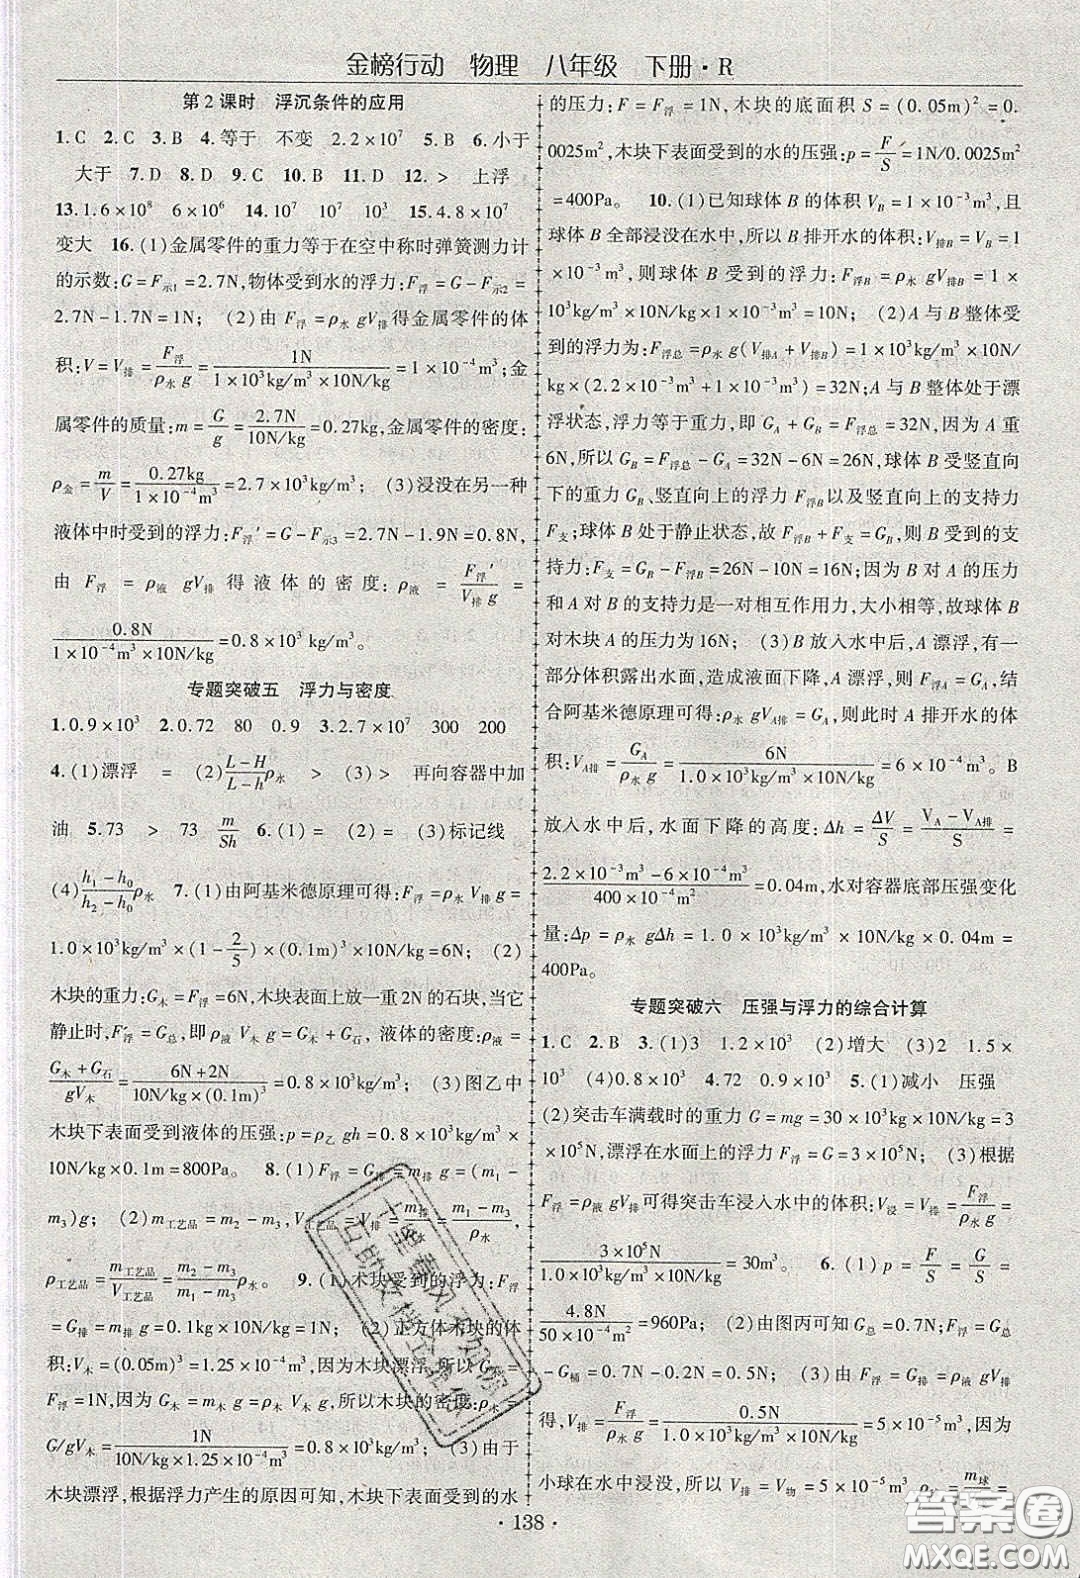 金榜行动 物理 八年级 下册·R
第2课时 浮沉条件的应用
1.C 2.C 3.B 4.等于 不变 2.2×10⁷ 5.B 6.小于
大于 7.D 8.D 9.C 10.B 11.D 12.> 上浮
13.1.6×10⁸ 6×10⁶ 14.10⁷ 10⁷ 10³ 15.4.8×10⁷
变大 16.(1)金属零件的重力等于在空中称时弹簧测力计
的示数:G=F示1=2.7N,物体受到水的浮力:F浮=G-F示2=
2.7N-1.7N=1N; (2)由 F浮=ρ水 gV排得金属零件的体
积:V=V排=F浮/ρ水 g=1N/1×10³kg/m³×10N/kg=1×10⁻⁴m³;金
属零件的质量:m=G/g=2.7N/10N/kg=0.27kg,金属零件的密度:
ρ金=m/V=0.27kg/1×10⁻⁴m³=2.7×10³kg/m³; (3)浸没在另一种
液体中时受到的浮力:F浮′=G-F示3=2.7N-1.9N=0.8N,
由 F浮=ρ液 gV排得液体的密度:ρ液=F浮′/V排 g=
0.8N/1×10⁻⁴m³×10N/kg=0.8×10³kg/m³。
专题突破五 浮力与密度
1.0.9×10³ 2.0.72 80 0.9 3.2.7×10⁷ 300 200
4.(1)漂浮 = (2)L-H/L-h ρ水 > (3)> 再向容器中加
油 5.73 > 73 m/Sh 6.(1)= (2)= (3)标记线
(4)h₁-h₀/h₂-h₀ ρ水 7.(1)由阿基米德原理可得:F浮=ρ水 V排 g=
1.0×10³kg/m³×(1-2/5)×(0.1m)³×10N/kg=6N; (2)
木块的重力:G木=F浮=6N,木块表面上放一重2N的石块,当它
静止时,F浮=G总,即ρ液 V木 g=G木+G石,液体的密度:ρ液=
G木+G石/gV木=6N+2N/10N/kg×(0.1m)³=0.8×10³kg/m³; (3)图乙中
木块下表面受到液体的压强:p=ρ乙 gh=0.8×10³kg/m³×
10N/kg×0.1m=800Pa。 8.(1)F浮=G排=m排 g=(m₁-
m₃)g; (2)m工艺品=m₂-m₃,V工艺品=V排=m排/ρ水=m₁-m₃/ρ水,
ρ工艺品=m工艺品/V工艺品=m₂-m₃/m₁-m₃ ρ水。 9.(1)木块受到的浮力:F浮
=G排=m排 g=0.1kg×10N/kg=1N; (2)正方体木块的体
积:V木=(0.05m)³=1.25×10⁻⁴m³,因为木块漂浮,所以G木=
F浮=1N,因为G木=m木 g=ρ木 V木 g,所以木块的密度:ρ木=
G/gV木=1N/10N/kg×1.25×10⁻⁴m³=0.8×10³kg/m³; (3)由于
木块漂浮,根据浮力产生的原因可知,木块下表面受到的水
的压力:F=F浮=1N,木块的底面积S=(0.05m)²=0.
0025m²,木块下表面受到的水的压强:p=F/S=1N/0.0025m²
=400Pa。 10.(1)已知球体B的体积VB=1×10⁻³m³,且
球体B全部浸没在水中,所以B排开水的体积:V排B=VB=1
×10⁻³m³,则球体B受到的浮力:F浮B=ρ水 gV排B=1×
10³kg/m³×10N/kg×1×10⁻³m³=10N; (2)A与B整体受
到的浮力为:F浮总=ρ水 g(V排A+V排B)=1×10³kg/m³×10N/
kg×(2.2×10⁻³m³+1×10⁻³m³)=32N;A与B整体处于漂
浮状态,浮力等于重力,即GA+GB=F浮总=32N,因A重
6N,所以GB=F浮总-GA=32N-6N=26N,球体B受竖直向
下的重力GB、竖直向上的浮力F浮B以及竖直向上的支持力
F支;球体B处于静止状态,故F浮B+F支=GB,则B受到的支
持力:F支=GB-F浮B=26N-10N=16N;因为B对A的压力
和A对B的支持力是一对相互作用力,大小相等,故球体B
对木块A的压力为16N; (3)B放入水中后,A漂浮,有一
部分体积露出水面,造成液面下降,A漂浮,则F浮A=GA,结
合阿基米德原理可得:ρ水 gVA排=GA,则此时A排开水的体
积:VA排=GA/ρ水 g=6N/1.0×10³kg/m³×10N/kg=6×10⁻⁴m³。B
放入水中后,水面下降的高度:Δh=ΔV/S=VA-VA排/S=
2.2×10⁻³m³-6×10⁻⁴m³/400×10⁻⁴m²=0.04m,水对容器底部压强变化
量:Δp=ρ水 gΔh=1.0×10³kg/m³×10N/kg×0.04m=
400Pa。
专题突破六 压强与浮力的综合计算
1.C 2.B 3.(1)3 1.2×10³ (2)增大 (3)2 1.5×
10³ (4)0.8×10³ 4.72 0.9×10³ 5.(1)减小 压强
(2)突击车满载时的重力G=mg=30×10³kg×10N/kg=3
×10⁵N,漂浮在水面上的浮力F浮=G=3×10⁵N; (3)根据
F浮=ρ液 gV排可得突击车浸入水中的体积:V浸=V排=F浮/ρ水 g=
3×10⁵N/1.0×10³kg/m³×10N/kg=30m³。 6.(1)p=F/S=G/S=
4.8N/50×10⁻⁴m²=960Pa; (2)由图丙可知G总=0.7N;F浮=G总
-G桶=0.7N-0.2N=0.5N; (3)由F浮=G排=ρ水 gV排
得,V排=F浮/ρ水 g=0.5N/1.0×10³kg/m³×10N/kg=5×10⁻⁵m³,因为
小球在水中浸没,所以V排=V物=5×10⁻⁵m³,ρ=m球
·138·
上里春风不如你
互助文档全靠你
答案圈
MXQE.COM